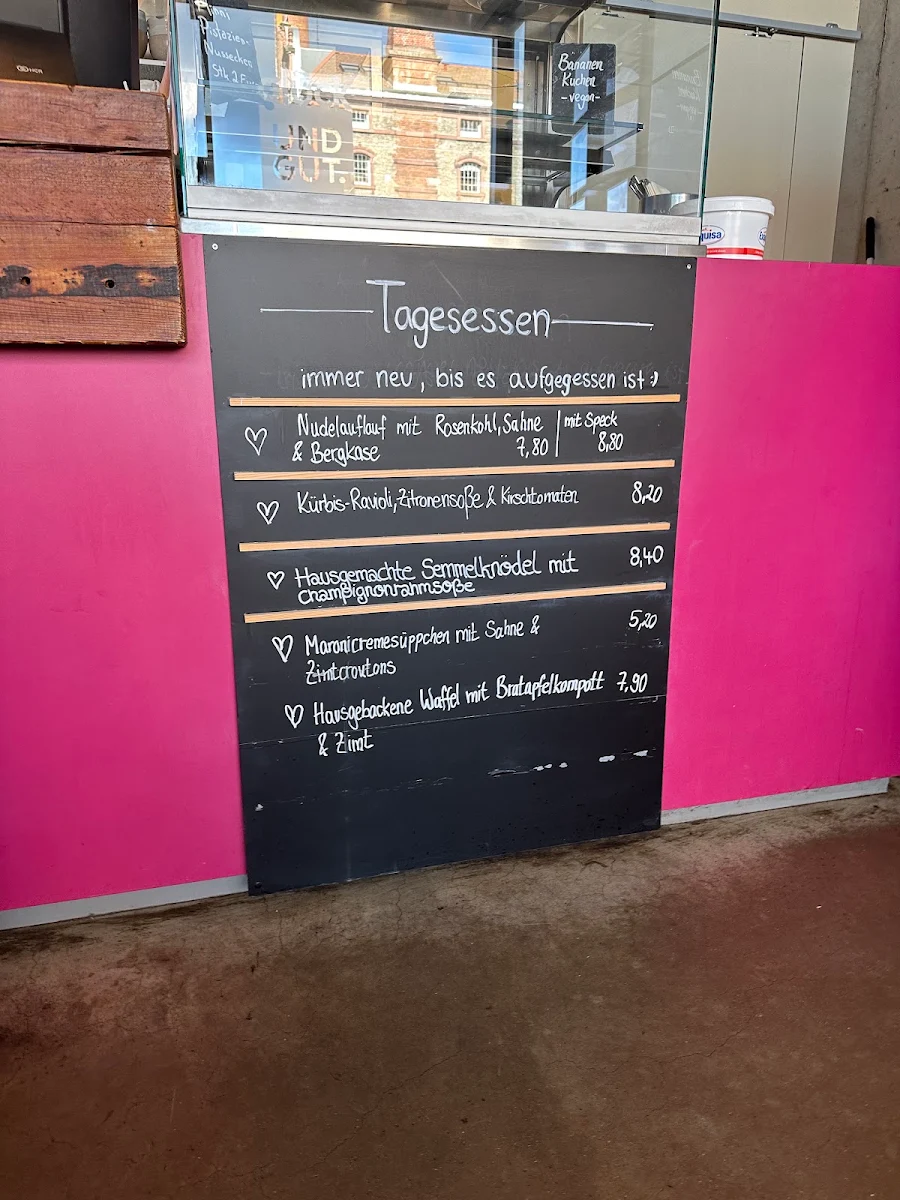 Nussecken
Stk. 2
Bananen
Kuchen
-vegan-
UND
GUT.
quisa
Tagesessen
immer neu, bis es aufgegessen ist :)
Nudelauflauf mit Rosenkohl, Sahne | mit Speck
& Bergkäse 7,80 | 8,80
Kürbis-Ravioli, Zitronensoße & Kirschtomaten 8,20
Hausgemachte Semmelknödel mit 8,40
Champignonrahmsoße
Maronicremesüppchen mit Sahne & 5,20
Zimtcroutons
Hausgebackene Waffel mit Bratapfelkompott 7,90
& Zimt